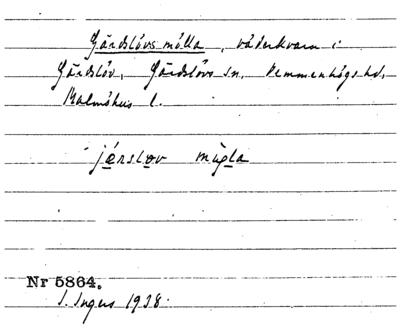 Gärdslövs mölla, väderkvarn i
Gärdslöv, Gärdslövs sn, Vemmenhögs hd,
Malmöhus l.
járslov mø̀gla
Nr 5864.
I. Ingers 1938.